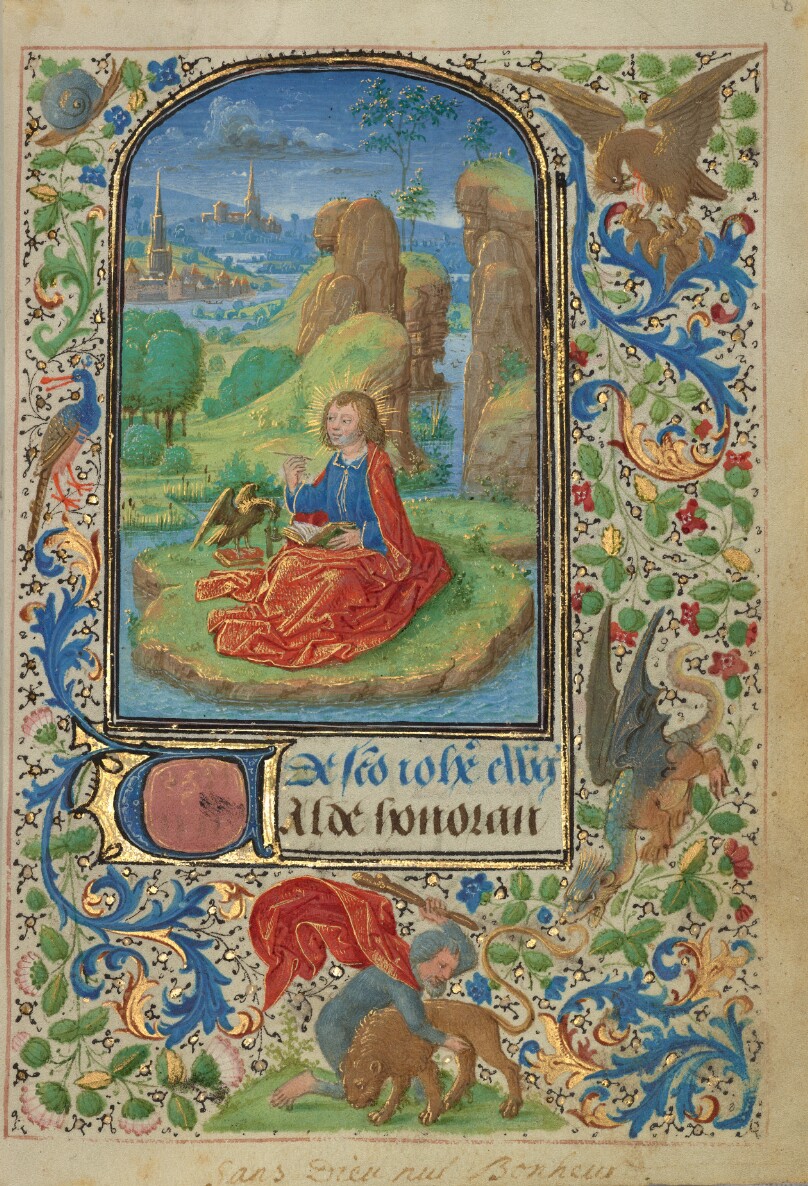 De sc̄o ioh̄e ewg̃
VAlde honoran
Sans Dieu nul Bonheur